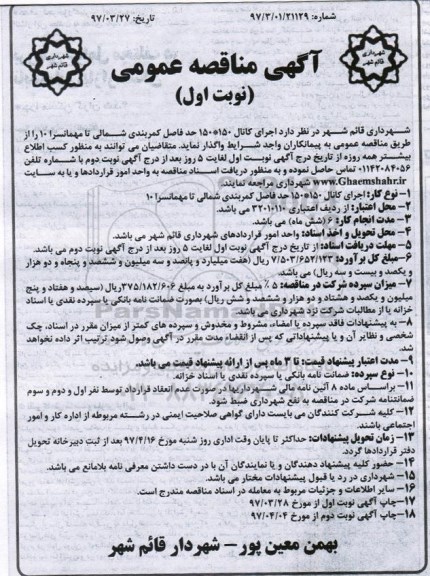 شماره: ۹۷/۳/۰۱/۲۱۱۲۹
تاریخ: ۹۷/۰۳/۲۷
شهرداری
قائم شهر
شهرداری
قائم شهر
آگهی مناقصه عمومی
(نوبت اول)
شهرداری قائم شهر در نظر دارد اجرای کانال ۱۵۰*۱۵۰ حد فاصل کمربندی شمالی تا مهمانسرا ۱۰ را از
طریق مناقصه عمومی به پیمانکاران واجد شرایط واگذار نماید. متقاضیان می توانند به منظور کسب اطلاع
بیشتر همه روزه از تاریخ درج آگهی نوبت اول لغایت ۵ روز بعد از درج آگهی نوبت دوم با شماره تلفن
۰۱۱۴۲۰۸۴۰۵۶ تماس حاصل نموده و به منظور دریافت اسناد مناقصه به واحد امور قراردادها و یا به سایت
www.Ghaemshahr.ir شهرداری مراجعه نمایند.
۱- نوع کار: اجرای کانال ۱۵۰*۱۵۰ حد فاصل کمربندی شمالی تا مهمانسرا ۱۰
۲- محل اعتبار: از ردیف اعتباری ۳۲۰۱۰۱۱۰ می باشد.
۳- مدت انجام کار: ۶ (شش ماه) می باشد.
۴- محل تحویل و اخذ اسناد: واحد امور قراردادهای شهرداری قائم شهر می باشد.
۵- مهلت دریافت اسناد: از تاریخ درج آگهی نوبت اول لغایت ۵ روز بعد از درج آگهی نوبت دوم می باشد.
۶- مبلغ کل برآورد: ۷/۵۰۳/۶۵۲/۱۲۳ ریال (هفت میلیارد و پانصد و سه میلیون و ششصد و پنجاه و دو هزار
و یکصد و بیست و سه ریال) می باشد.
۷- میزان سپرده شرکت در مناقصه: ۵ ٪ مبلغ کل برآورد به مبلغ ۳۷۵/۱۸۲/۶۰۶ ریال (سیصد و هفتاد و پنج
میلیون و یکصد و هشتاد و دو هزار و ششصد و شش ریال) بصورت ضمانت نامه بانکی یا سپرده نقدی یا اسناد
خزانه یا از مطالبات شرکت نزد شهرداری می باشد.
۸- به پیشنهادات فاقد سپرده یا امضاء، مشروط و مخدوش و سپرده های کمتر از میزان مقرر در اسناد، چک
شخصی و نظایر آن و یا پیشنهاداتی که پس از انقضاء مدت مقرر در آگهی وصول شود ترتیب اثر داده نخواهد
شد.
۹- مدت اعتبار پیشنهاد قیمت: تا ۳ ماه پس از ارائه پیشنهاد قیمت می باشد.
۱۰- نوع سپرده: ضمانت نامه بانکی یا سپرده نقدی یا اسناد خزانه.
۱۱- براساس ماده ۸ آئین نامه مالی شهرداریها در صورت عدم انعقاد قرارداد توسط نفر اول و دوم و سوم
ضمانتنامه شرکت در مناقصه به نفع شهرداری ضبط شود.
۱۲- کلیه شرکت کنندگان می بایست دارای گواهی صلاحیت ایمنی در رشته مربوطه از اداره کار و امور
اجتماعی باشند.
۱۳- زمان تحویل پیشنهادات: حداکثر تا پایان وقت اداری روز شنبه مورخ ۹۷/۴/۱۶ بعد از ثبت دبیرخانه تحویل
دفتر قراردادها گردد.
۱۴- حضور کلیه پیشنهاد دهندگان و یا نمایندگان آن با در دست داشتن معرفی نامه بلامانع می باشد.
۱۵- شهرداری در رد یا قبول پیشنهادات مختار می باشد.
۱۶- سایر اطلاعات و جزئیات مربوط به معامله در اسناد مناقصه مندرج است.
۱۷- چاپ آگهی نوبت اول از مورخ ۹۷/۰۳/۲۸
۱۸- چاپ آگهی نوبت دوم از مورخ ۹۷/۰۴/۰۴
بهمن معین پور – شهردار قائم شهر